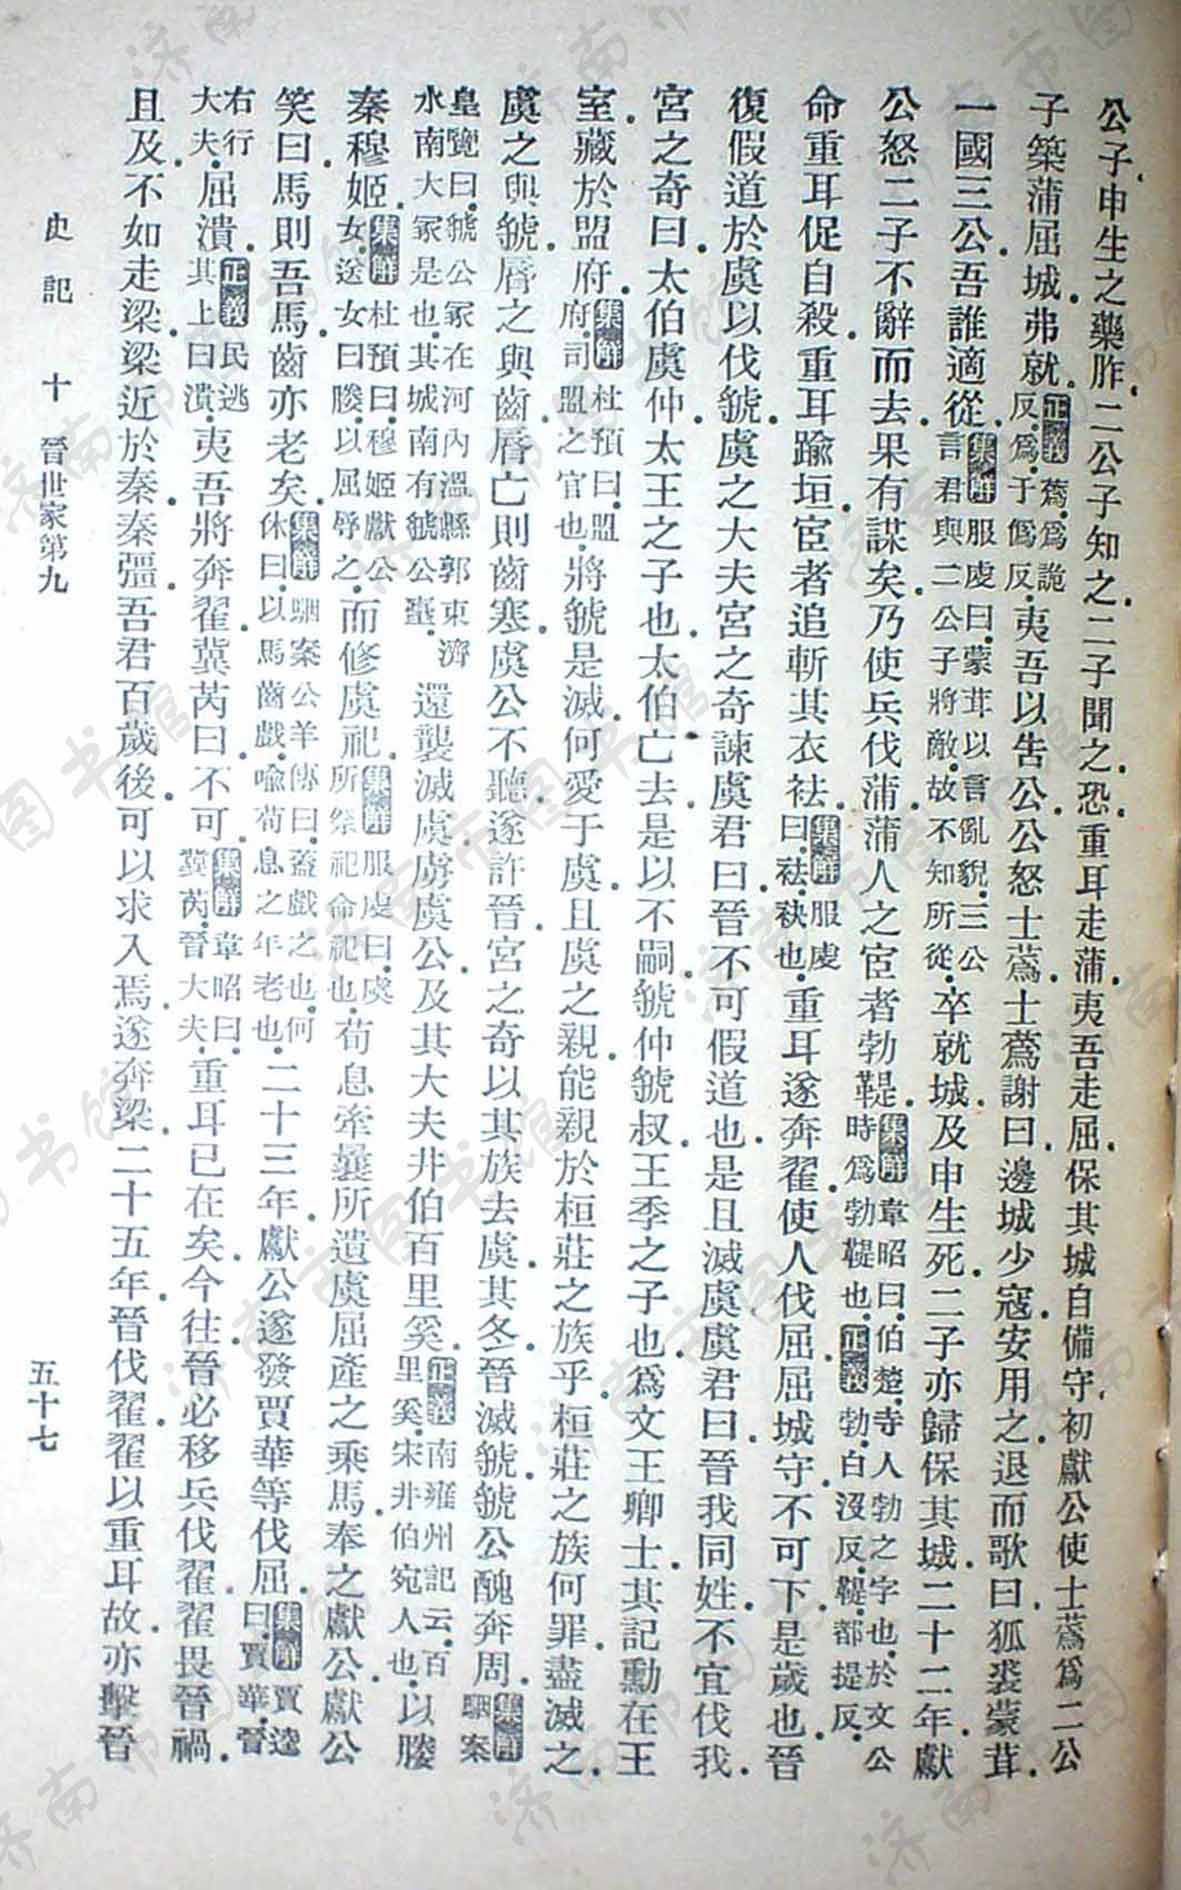 公子申生之藥胙.二公子知之.二子聞之.恐.重耳走蒲.夷吾走屈.保其城自備守.初獻公使士蔿爲二公
子築蒲屈城.弗就.正義蔿.爲詭反.爲.于僞反.夷吾以告公.公怒士蔿.士蔿謝曰.邊城少寇.安用之.退而歌曰.狐裘蒙茸.
一國三公.吾誰適從.集解服虔曰.蒙茸以言亂貌.三公言君與二公子將敵.故不知所從.卒就城.及申生死.二子亦歸保其城.二十二年.獻
公怒二子不辭而去.果有謀矣.乃使兵伐蒲.蒲人之宦者勃鞮.集解韋昭曰.伯楚.寺人勃之字也.於文公時爲勃鞮也.正義勃.白沒反.鞮.都提反.
命重耳促自殺.重耳踰垣.宦者追斬其衣袪.集解服虔曰.袪.袂也.重耳遂奔翟.使人伐屈.屈城守.不可下.是歲也.晉
復假道於虞以伐虢.虞之大夫宮之奇諫虞君曰.晉不可假道也.是且滅虞.虞君曰.晉我同姓.不宜伐我.
宮之奇曰.太伯虞仲.太王之子也.太伯亡去.是以不嗣.虢仲虢叔.王季之子也.爲文王卿士.其記勳在王
室.藏於盟府.集解杜預曰.盟府.司盟之官也.將虢是滅.何愛于虞.且虞之親.能親於桓莊之族乎.桓莊之族何罪.盡滅之.
虞之與虢.脣之與齒.脣亡則齒寒.虞公不聽.遂許晉.宮之奇以其族去虞.其冬.晉滅虢.虢公醜奔周.集解駰案
皇覽曰.虢公冢在河內溫縣郭東濟水南大冢是也.其城南有虢公臺.還襲滅虞.虜虞公.及其大夫井伯百里奚.正義南雍州記云.百里奚.宋井伯宛人也.以媵
秦穆姬.集解杜預曰.穆姬獻公女.送女曰媵.以屈辱之.而修虞祀.集解服虔曰.虞所祭祀命祀也.荀息牽曩所遺虞屈產之乘馬.奉之獻公.獻公
笑曰.馬則吾馬.齒亦老矣.集解駰案公羊傳曰.蓋戲之也.何休曰.以馬齒戲.喻荀息之年老也.二十三年.獻公遂發賈華等伐屈.集解賈逵曰.賈華.晉
右行大夫.屈潰.正義民逃其上曰潰.夷吾將奔翟.冀芮曰.不可.集解韋昭曰.冀芮.晉大夫.重耳已在矣.今往.晉必移兵伐翟.翟畏晉.禍
且及.不如走梁.梁近於秦.秦彊.吾君百歲後.可以求入焉.遂奔梁.二十五年.晉伐翟.翟以重耳故.亦擊晉
史記 十 晉世家第九 五十七
济南市图书馆